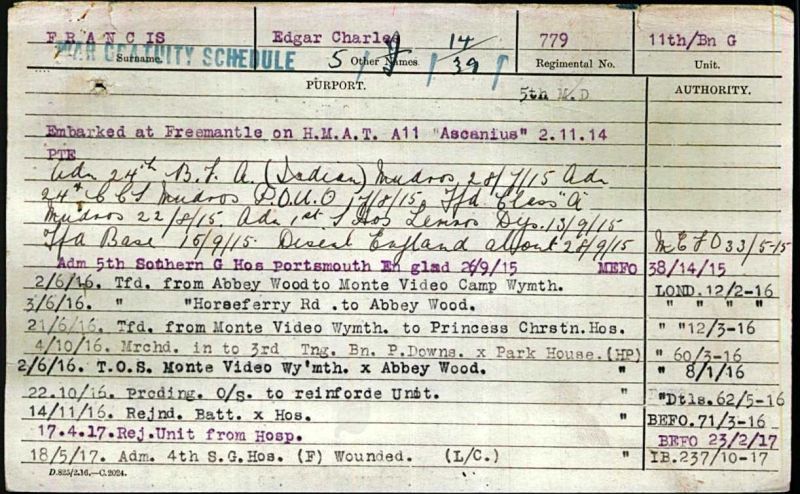 FRANCIS Edgar Charles 14/39 779 11th/Bn G
WAR GRATUITY SCHEDULE 5
Surname. Other Names. Regimental No. Unit.
PURPORT. AUTHORITY.
5th M.D
Embarked at Freemantle on H.M.A.T. A11 "Ascanius" 2.11.14
PTE
Adm 24th B.F.A. (Indian) Mudros 28/7/15 Adm
24th CCS Mudros P.O.U.O 17/8/15. Tfd Class "A"
Mudros 22/8/15 Adm 1st S Hos Lemnos Dys. 13/9/15
Tfd Base 15/9/15. Disemb England about 28/9/15 MEFO 33/5-15
Adm 5th Sothern G Hos Portsmouth En glad 26/9/15 MEFO 38/14/15
2/6/16. Tfd. from Abbey Wood to Monte Video Camp Wymth. LOND. 12/2-16
3/6/16. " "Horseferry Rd .to Abbey Wood. " " " "
21/6/16. Tfd. from Monte Video Wymth. to Princess Chrstn. Hos. " "12/3-16
4/10/16. Mrchd. in to 3rd Tng. Bn. P.Downs. x Park House. (HP) " 60/3-16
2/6/16. T.O.S. Monte Video Wy'mth. x Abbey Wood. " " 8/1/16
22.10/16. Prcding. O/s. to reinforde Unit. " "Dtls. 62/5-16
14/11/16. Rejnd. Batt. x Hos. " BEFO. 71/3-16
17.4.17. Rej.Unit from Hosp. BEFO 23/2/17
18/5/17. Adm. 4th S.G.Hos. (F) Wounded. (L/C.) " IB.237/10-17
D.825/2.16.—C.2024.